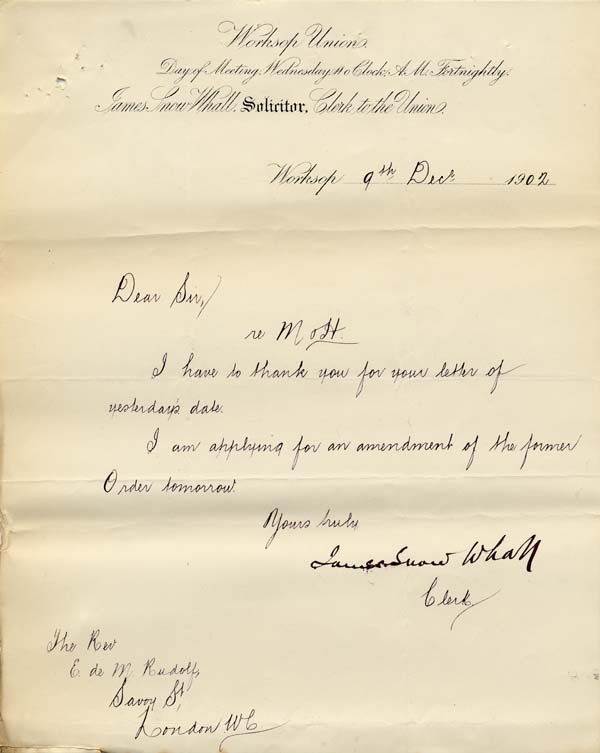 Worksop Union.
Day of Meeting, Wednesday, 11 o'Clock, A.M. Fortnightly.
James Snow Whall, Solicitor, Clerk to the Union.
Worksop 9th Decr. 1902
Dear Sir,
re M of H.
I have to thank you for your letter of
yesterday's date.
I am applying for an amendment of the former
Order tomorrow.
Yours truly
James Snow Whall
Clerk
The Rev
E. de M. Rudolf,
Savoy St,
London WC